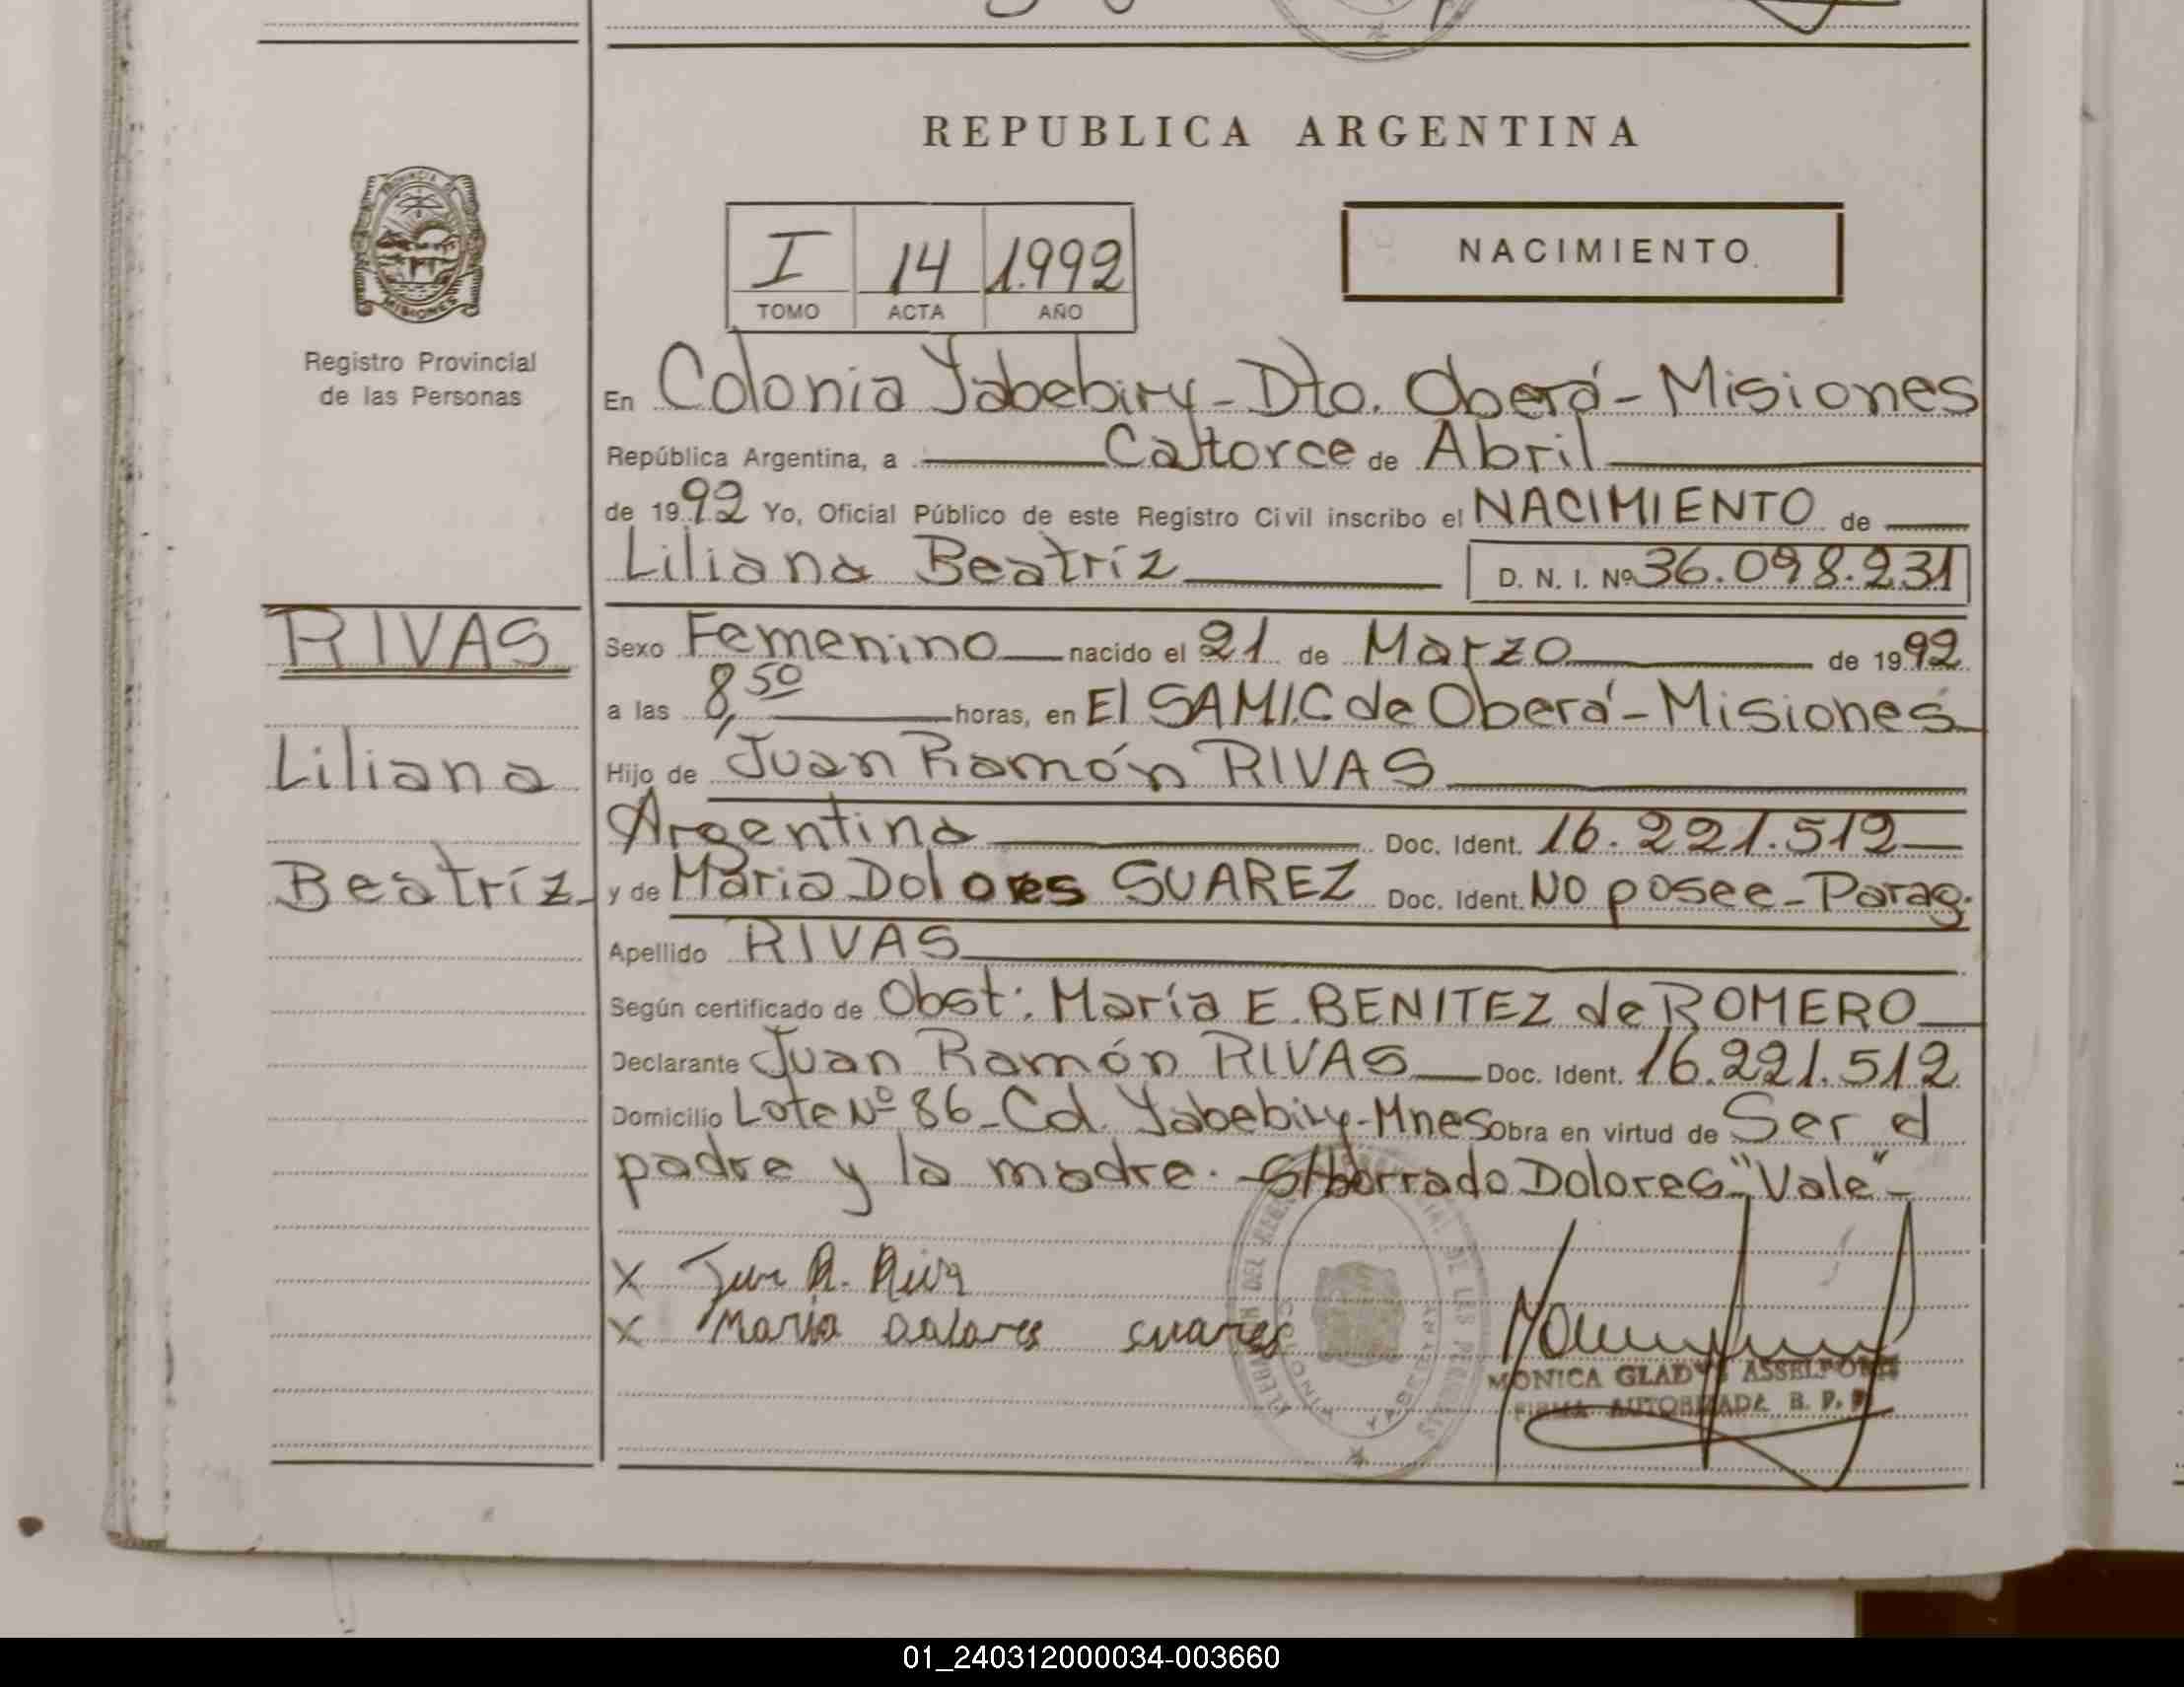 REPUBLICA ARGENTINA
PROVINCIA DE
MISIONES
Registro Provincial
de las Personas
I 14 1.992
TOMO ACTA AÑO
NACIMIENTO
En Colonia Yabebiry - Dto. Oberá - Misiones
República Argentina, a Catorce de Abril
de 1992 Yo, Oficial Público de este Registro Civil inscribo el NACIMIENTO de
Liliana Beatríz D. N. I. Nº 36.098.231
RIVAS
Liliana
Beatríz
Sexo Femenino nacido el 21 de Marzo de 1992
a las 8,50 horas, en El SAMIC de Oberá - Misiones
Hijo de Juan Ramón RIVAS
Argentina Doc. Ident. 16.221.512
y de Maria Dolores SUAREZ Doc. Ident. NO posee - Parag.
Apellido RIVAS
Según certificado de Obst: María E. BENITEZ de ROMERO
Declarante Juan Ramón RIVAS Doc. Ident. 16.221.512
Domicilio Lote Nº 86 - Col. Yabebiry - Mnes Obra en virtud de Ser el
padre y la madre. - S/borrado Dolores "Vale" -
X Juan R. Riva
X María Dolores suares
MONICA GLADYS
FIRMA AUTORIZADA R. P. P.
01_240312000034-003660